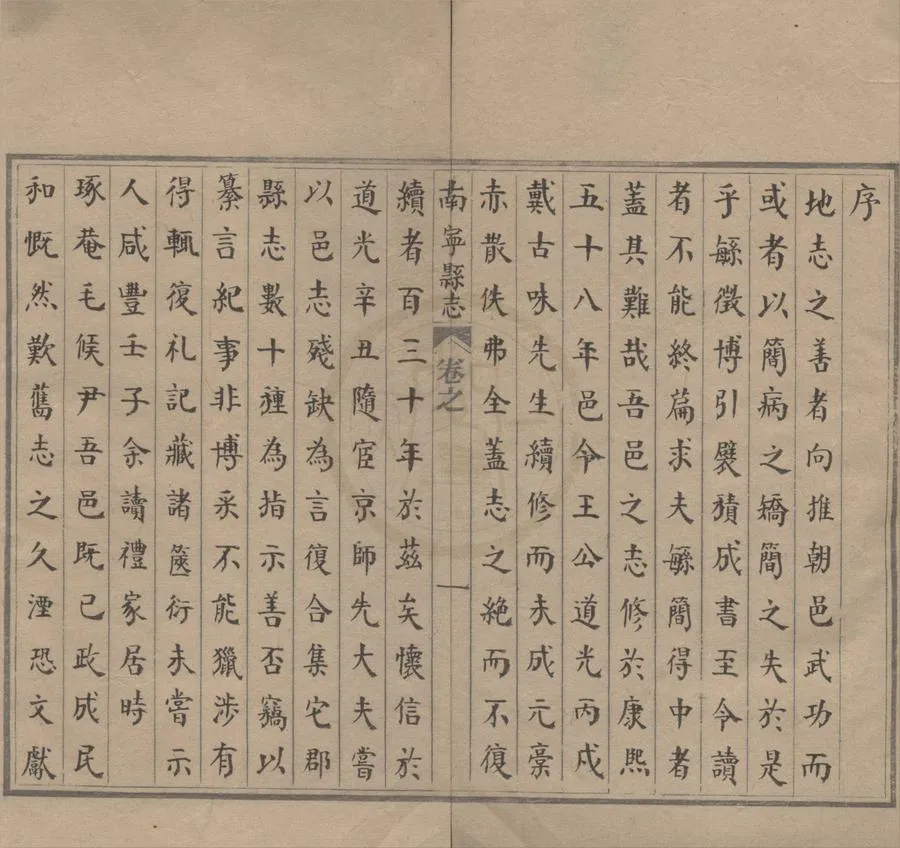 序
地志之善者向推朝邑武功而
或者以簡病之矯簡之失於是
乎緐徵博引襞積成書至令讀
者不能終篇求夫緐簡得中者
蓋其難哉吾邑之志修於康熙
五十八年邑令王公道光丙戍
戴古味先生續修而未成元稾
赤散佚弗全蓋志之絶而不復
南寧縣志 卷之 一
續者百三十年於茲矣懷信於
道光辛丑隨宦京師先大夫嘗
以邑志殘缺為言復合集它郡
縣志數十種為指示善否竊以
纂言紀事非博采不能獵涉有
得輒復札記藏諸篋衍未嘗示
人咸豐壬子余讀禮家居時
琢菴毛候尹吾邑既已政成民
和慨然歎舊志之久湮恐文獻